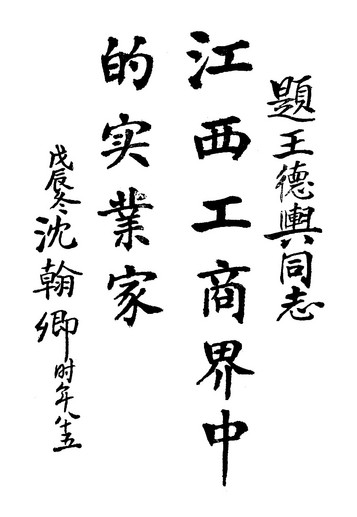 題王德輿同志
江西工商界中
的实業家
戊辰冬沈翰卿时年八十五